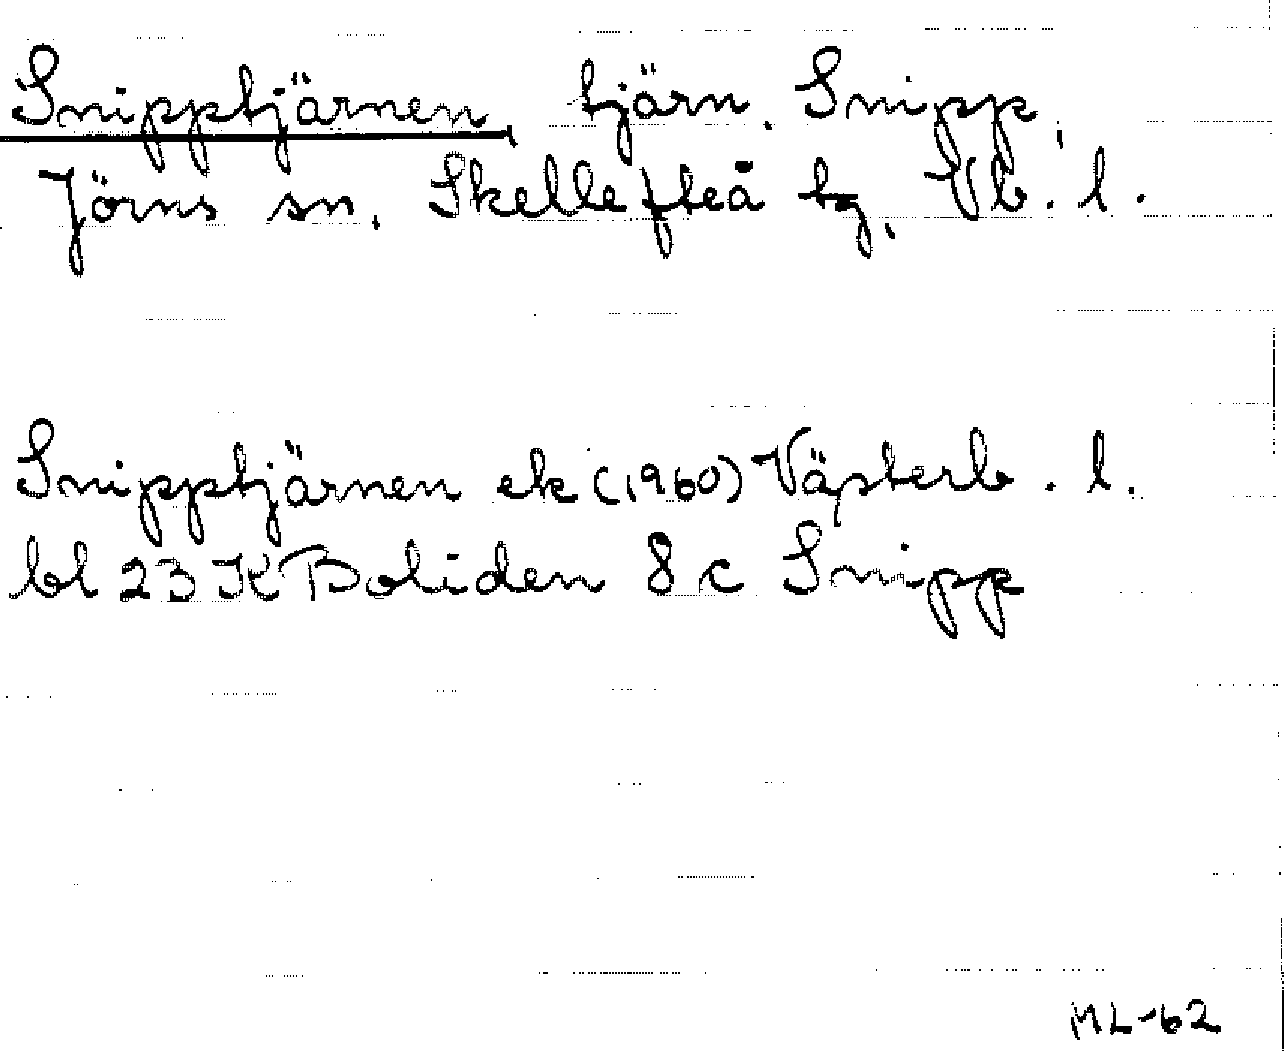 Snipptjärnen, tjärn, Snipp,
Jörns sn, Skellefteå tg, Vb. l.
Snipptjärnen ek (1960) Västerb. l.
bl 23 K Boliden 8 c Snipp
ML-62